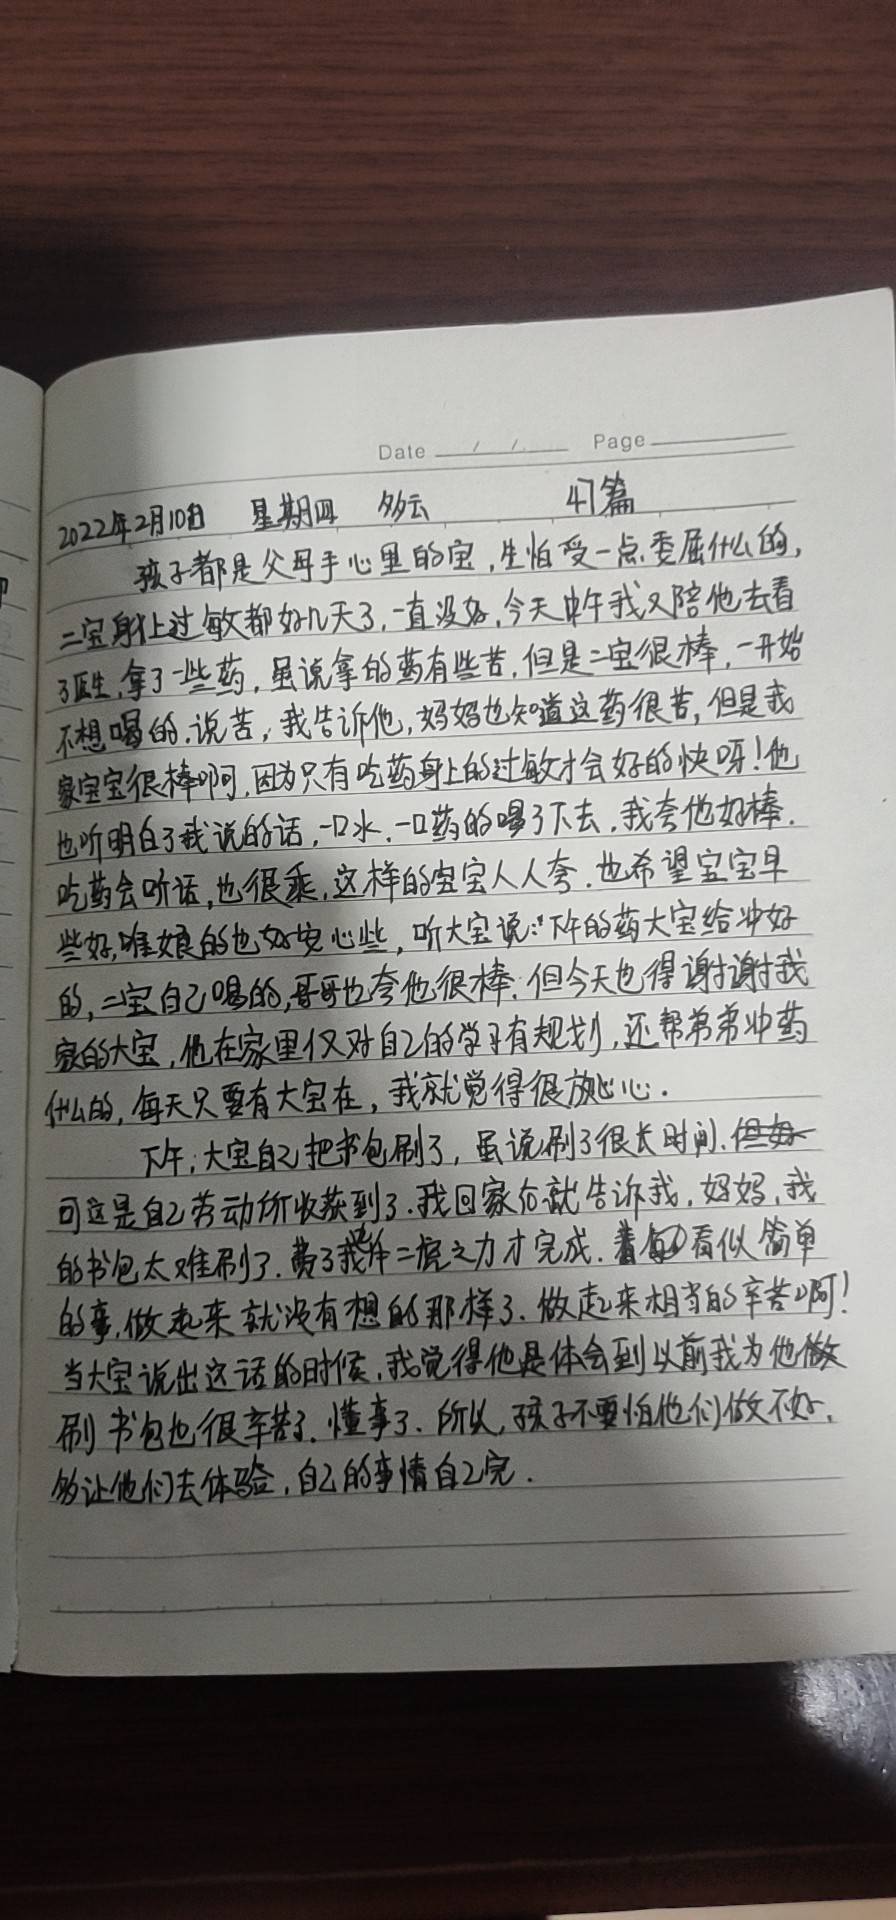 Date / / Page
2022年2月10日 星期四 多云 47篇
孩子都是父母手心里的宝,生怕受一点委屈什么的,
二宝身上过敏都好几天了,一直没好,今天中午我又陪他去看
了医生,拿了一些药,虽说拿的药有些苦,但是二宝很棒,一开始
不想喝的,说苦,我告诉他,妈妈也知道这药很苦,但是我
家宝宝很棒啊,因为只有吃药身上的过敏才会好的快呀!他
也听明白了我说的话,一口水,一口药的喝了下去,我夸他好棒.
吃药会听话,也很乖,这样的宝宝人人夸.也希望宝宝早
些好,唯娘的也好安心些,听大宝说:下午的药大宝给冲好
的,二宝自己喝的,哥哥也夸他很棒.但今天也得谢谢我
家的大宝,他在家里仅对自己的学习有规划,还帮弟弟冲药
什么的,每天只要有大宝在,我就觉得很放心.
下午,大宝自己把书包刷了,虽说刷了很长时间.但如
可这是自己劳动所收获到了.我回家后就告诉我,妈妈,我
的书包太难刷了.费了我牛二虎之力才完成.看似简单
的事,做起来就没有想的那样了.做起来相当的辛苦啊!
当大宝说出这话的时候,我觉得他是体会到以前我为他做
刷书包也很辛苦了.懂事了.所以,孩子不要怕他们做不好,
多让他们去体验,自己的事情自己完.